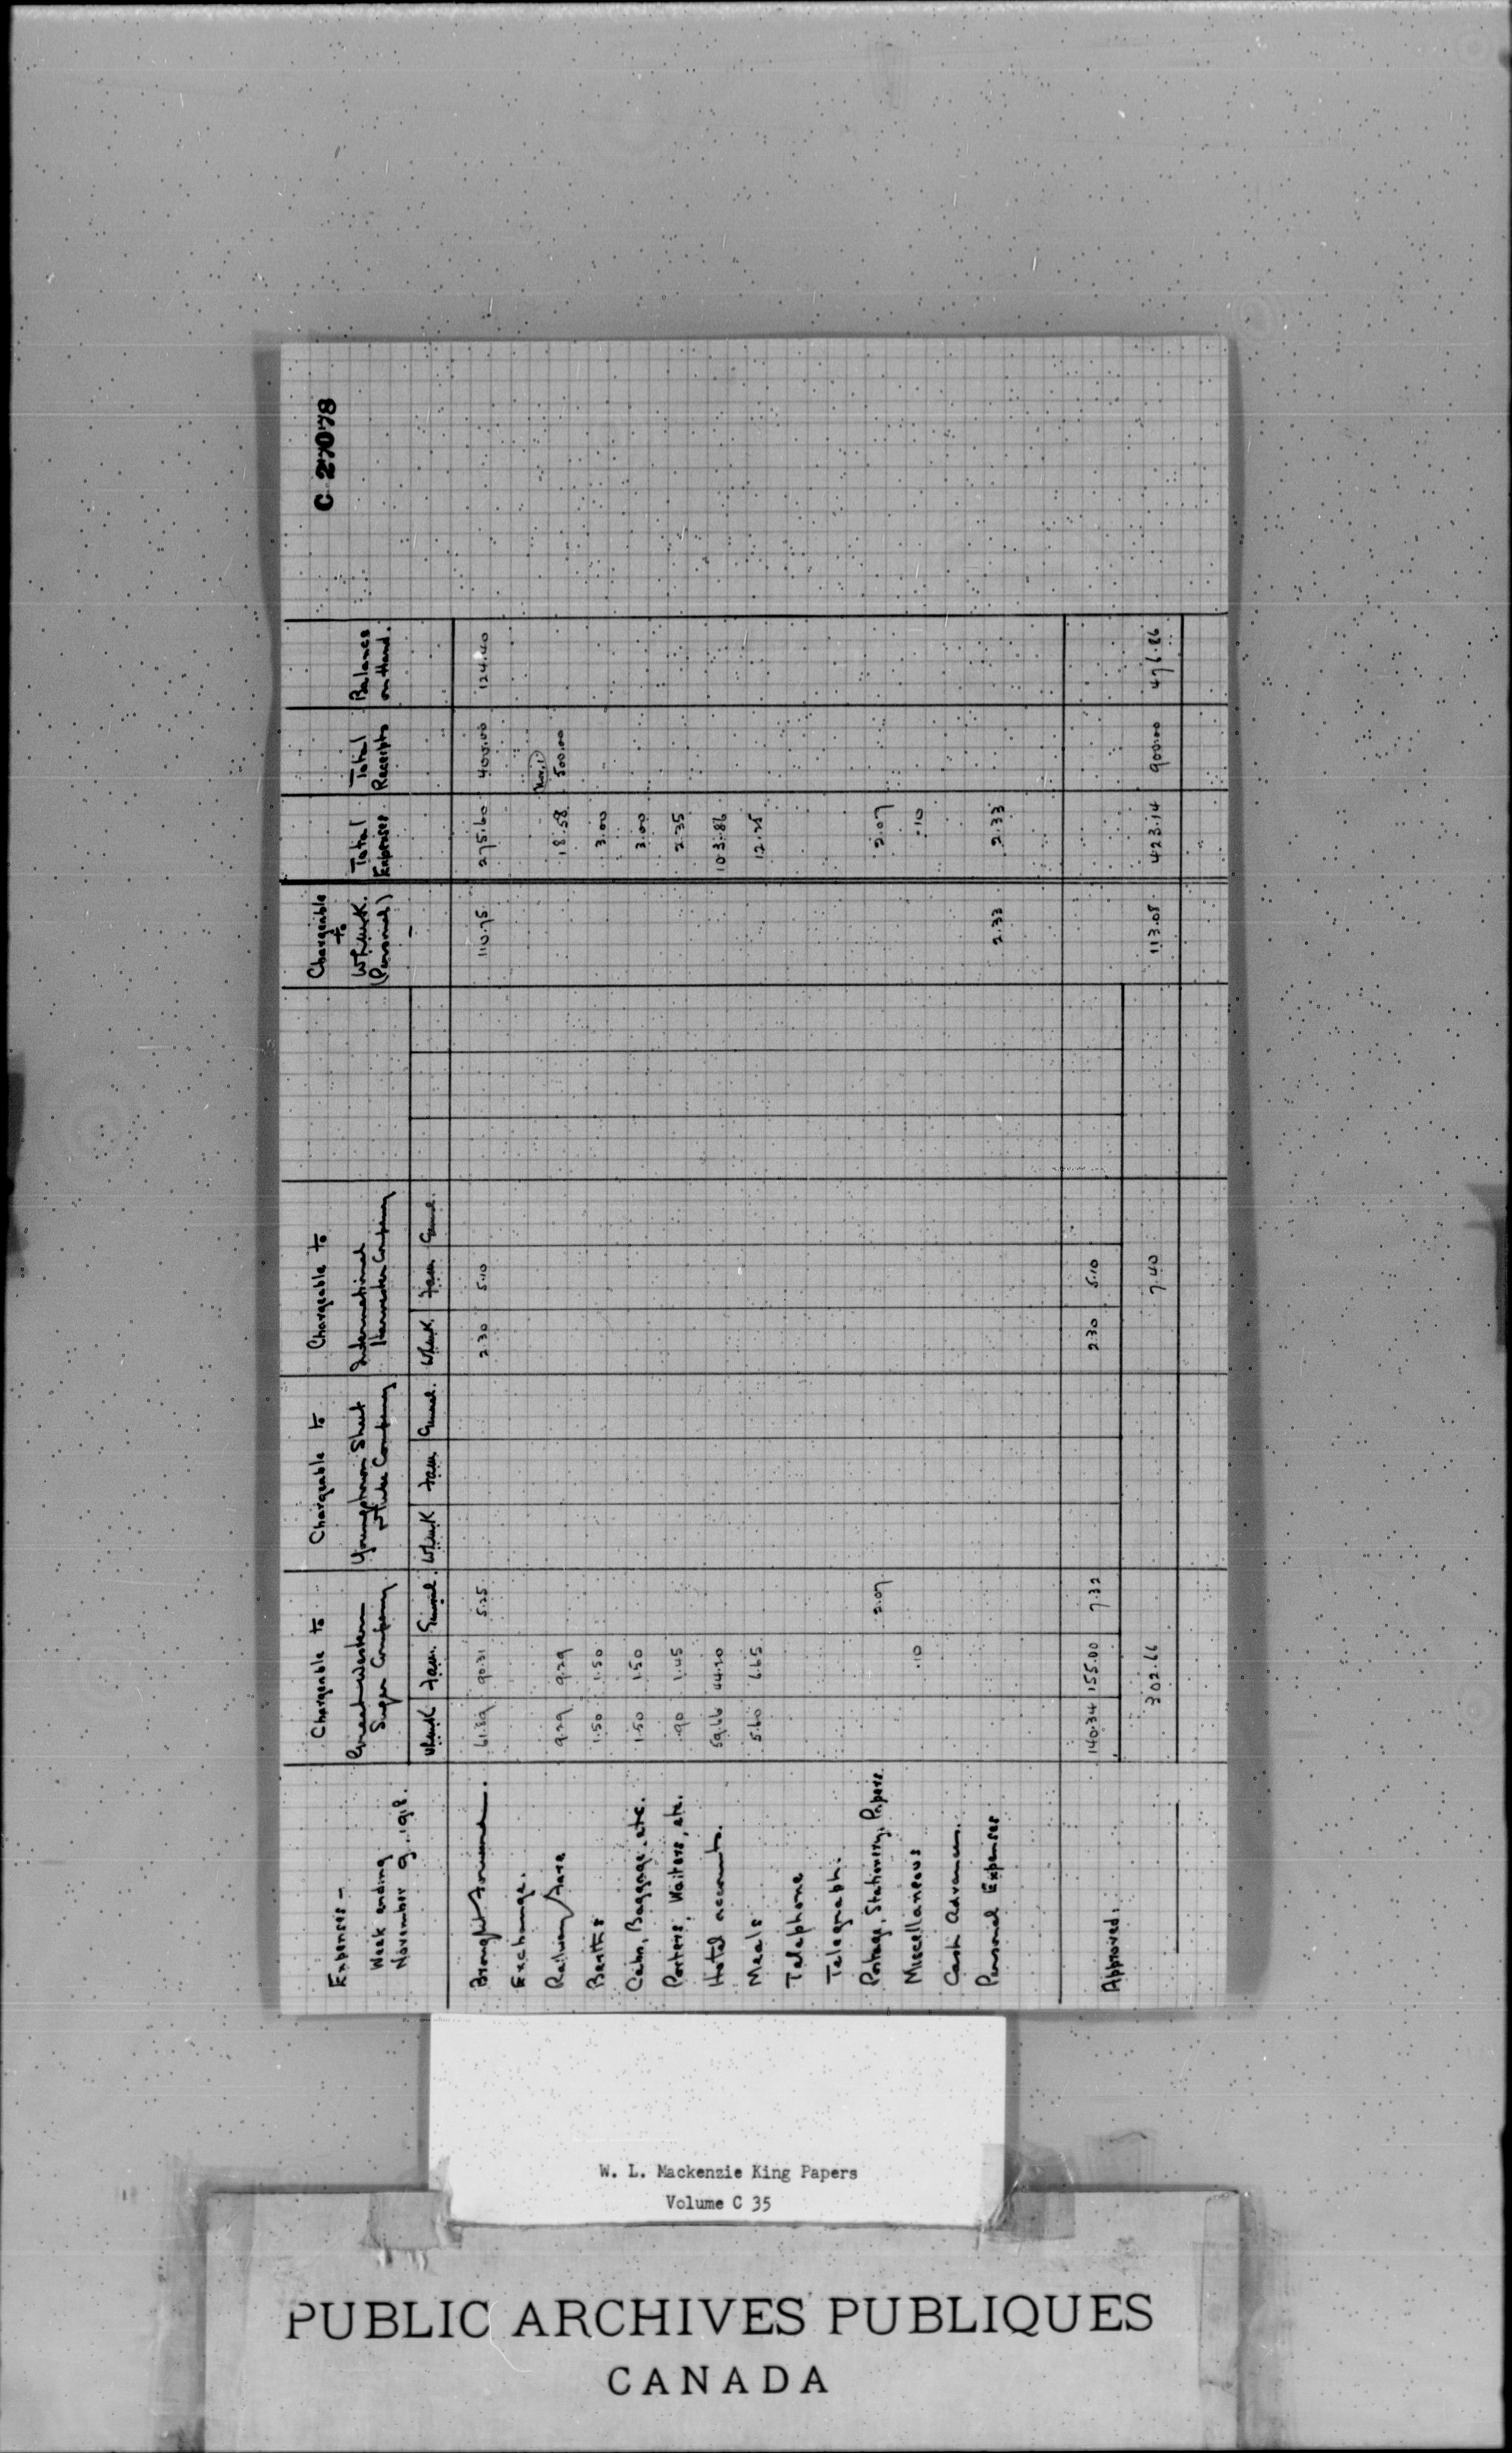 C 27078
Expenses -
Week ending
November 9, 1918.
Chargeable to
Great Western
Sugar Company
Chargeable to
Youngstown Sheet
& Tube Company
Chargeable to
International
Harvester Company
Chargeable
to
WLMK.
(Personal)
Total
Expenses
Total
Receipts
Balance
on Hand.
WLMK FAM. General. WLMK FAM. General. WLMK FAM. General.
Brought forward. 61.89 90.31 5.25 2.30 5.10 110.75 275.60 400.00 124.40
Exchange. (Nov. 1)
Railway fare 9.29 9.29 18.58 500.00
Berths 1.50 1.50 3.00
Cabs, Baggage, etc. 1.50 1.50 3.00
Porters, Waiters, etc. .90 1.45 2.35
Hotel accounts. 59.66 44.20 103.86
Meals 5.60 6.65 12.25
Telephone
Telegraph.
Postage, Stationery, Papers 2.07 2.07
Miscellaneous .10 .10
Cash Advances.
Personal Expenses 2.33 2.33
Approved: 140.34 155.00 7.32 2.30 5.10
302.66 7.40 113.08 423.14 900.00 476.86
W. L. Mackenzie King Papers
Volume C 35
PUBLIC ARCHIVES PUBLIQUES
CANADA